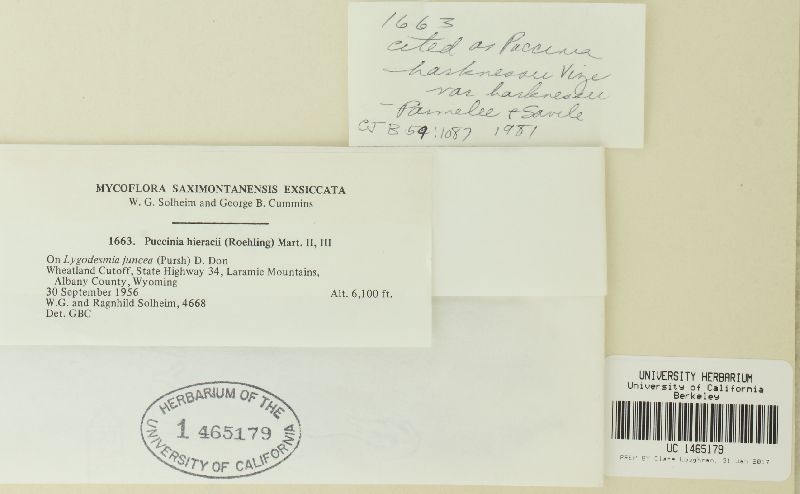 1663
cited as Puccinia
harknessii Vize
var harknessii
- Parmelee & Savile
CJB 59:1087 1981
MYCOFLORA SAXIMONTANENSIS EXSICCATA
W. G. Solheim and George B. Cummins
1663. Puccinia hieracii (Roehling) Mart. II, III
On Lygodesmia juncea (Pursh) D. Don
Wheatland Cutoff, State Highway 34, Laramie Mountains,
Albany County, Wyoming
30 September 1956 Alt. 6,100 ft.
W.G. and Ragnhild Solheim, 4668
Det. GBC
HERBARIUM OF THE
1 465179
UNIVERSITY OF CALIFORNIA
UNIVERSITY HERBARIUM
University of California
Berkeley
UC 1465179
PREP BY Clare Loughran, 31 Jan 2017